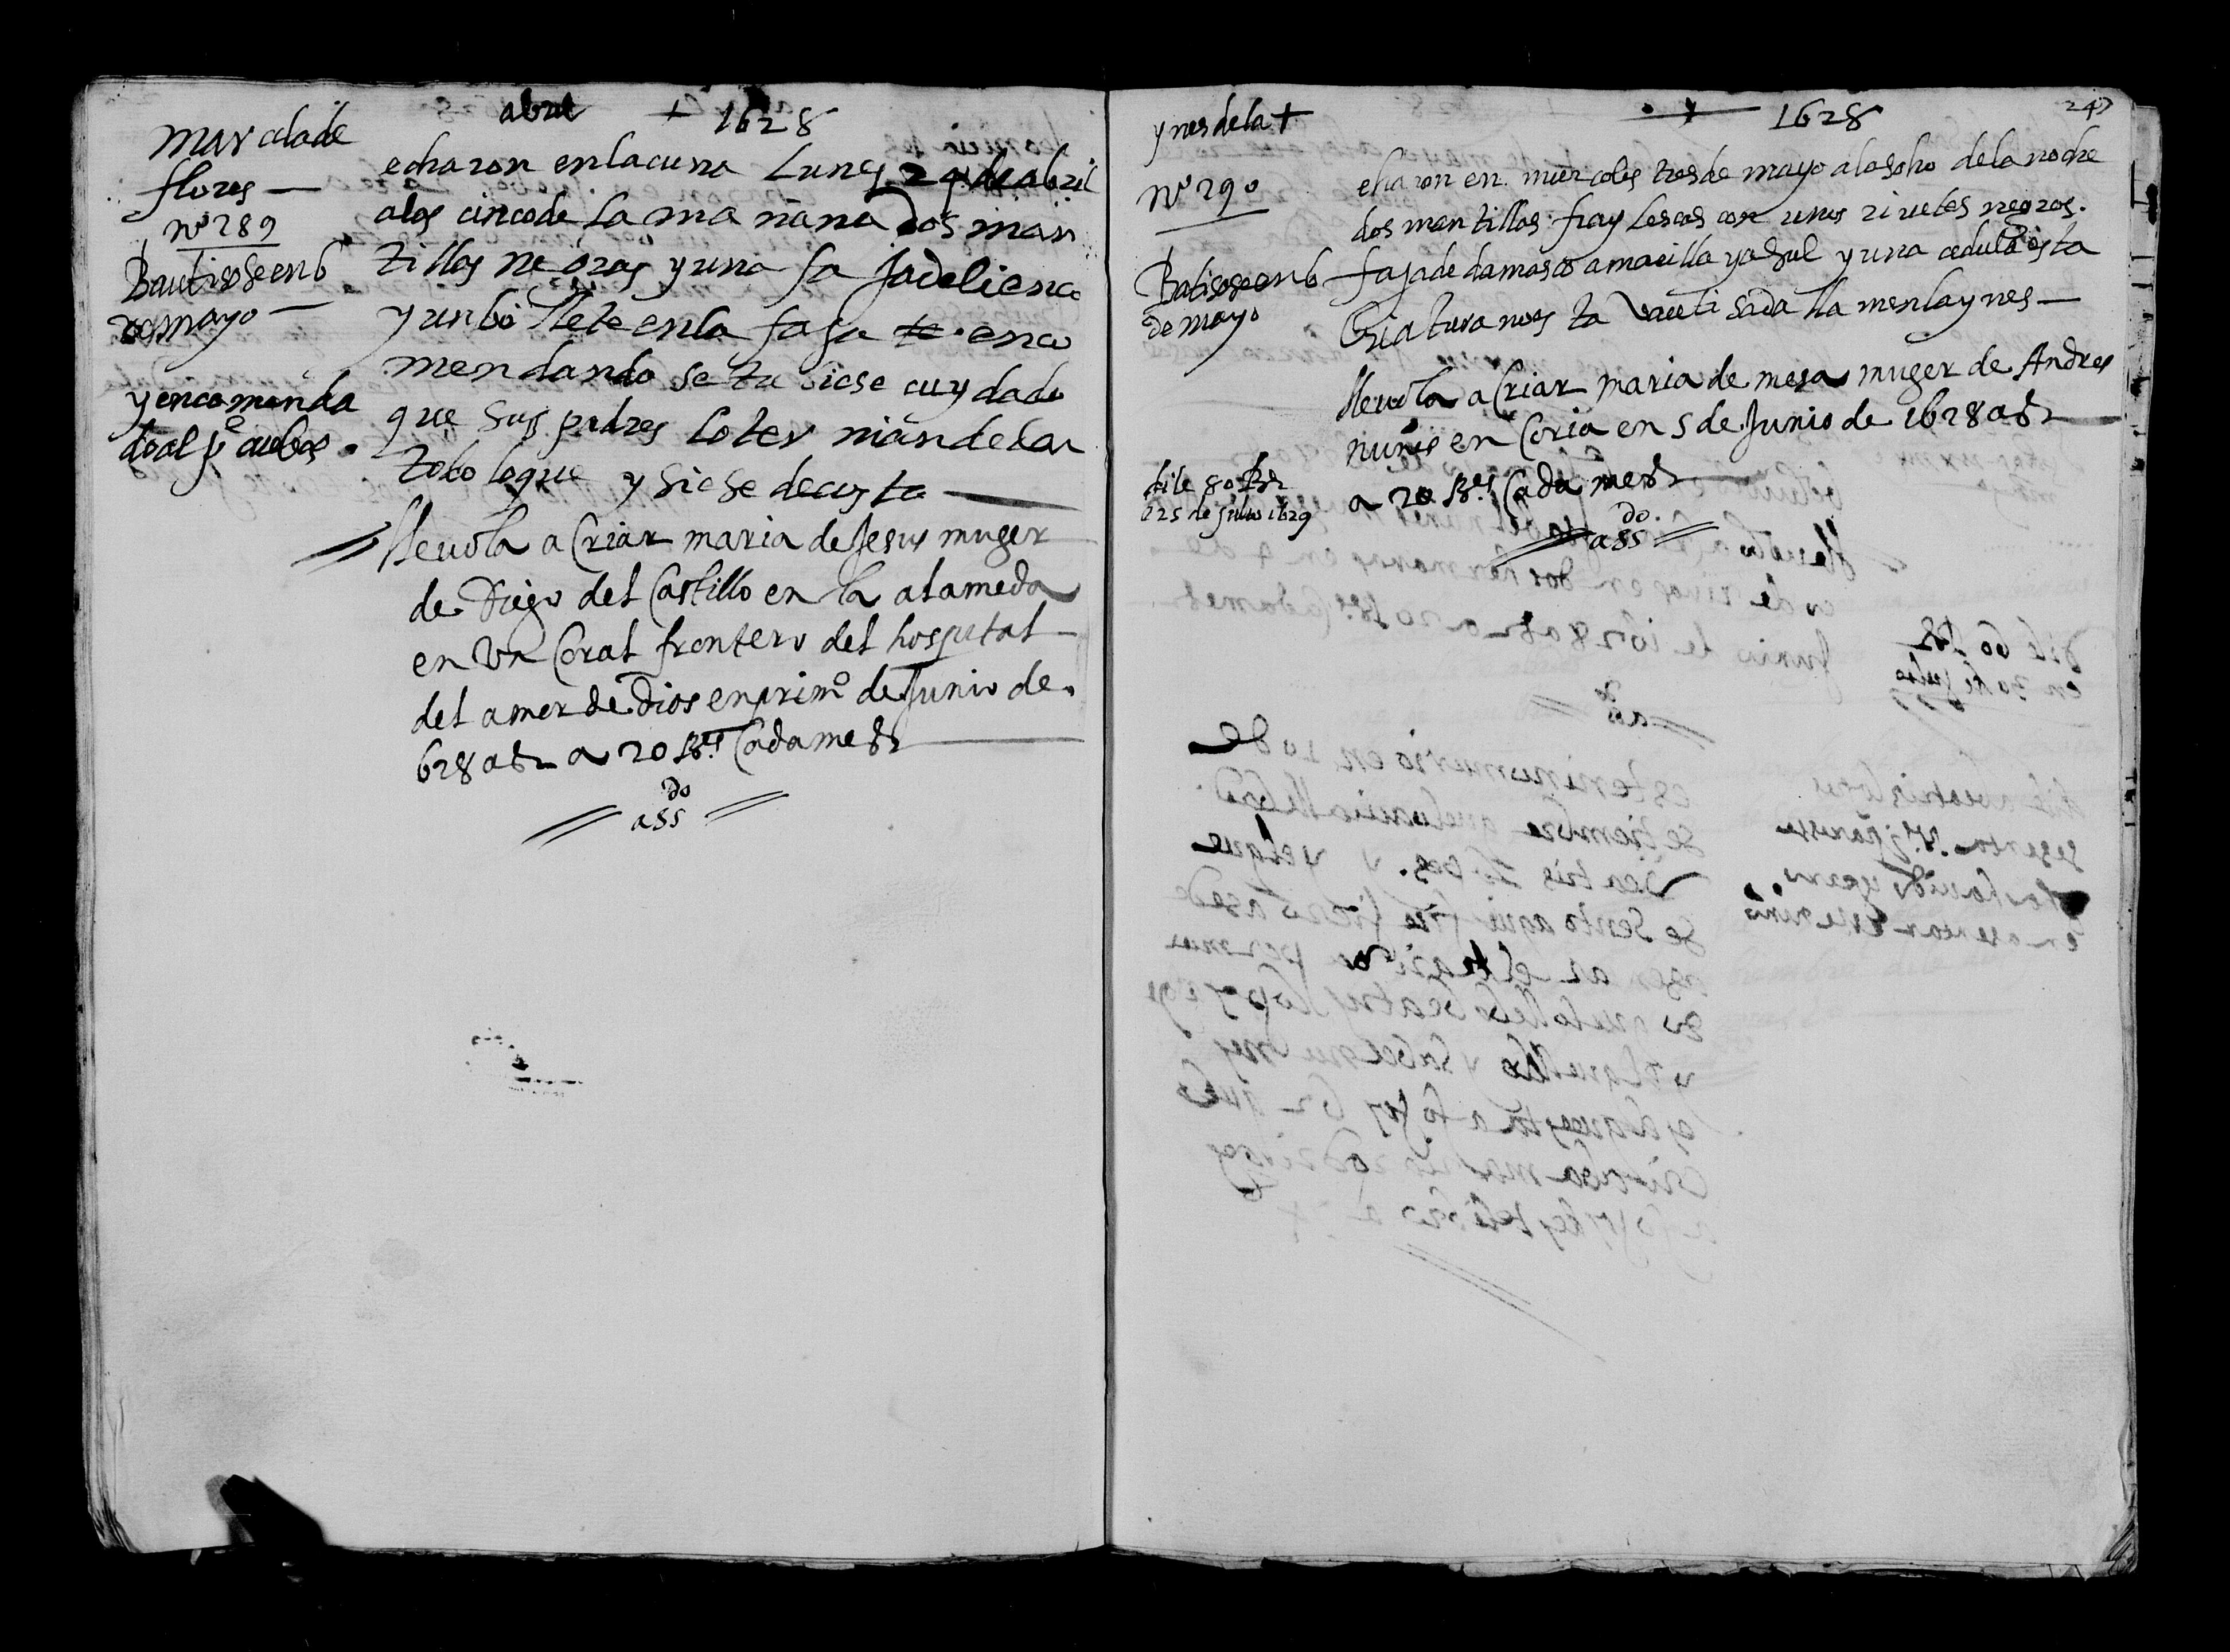 abril + 1628
marcela de
flores —
nº 289
Bautisose en 6
de mayo —
y encomenda
do al pe cubas .
echaron en la cuna lunes 24 de abril
a las cinco de la ma ñana dos man
tillas negras y una fa ja de lienco
y un bo llete en la faja te enco
mendando se tu biese cuydado
que sus padres lo ter nian de dar
todo lo que y siese de custa
lleuola a Criar maria de Jesus muger
de Diego del Castillo en la alameda
en Vn Coral frontero del hospital
del amor de Dios en primº de Junio de
628 as a 20 Rs Cada mes
do
ass
+ 1628
247
ynes de la +
nº 290
Batisose en 6
de mayo
dile 80 Rs
e 25 de Julio 1629
echaron en miercoles tres de mayo a las oho de la noche
dos mantillas fray lescas con unos rivetes negros.
faja de damasco amarilla y asul y una cedula esta
Criatura no es ta bauti sada lla menla ynes —
lleuola a Criar maria de mesa muger de Andres
nunes en Coria en 5 de Junio de 1628 as
a 20 Rs Cada mes
do
ass